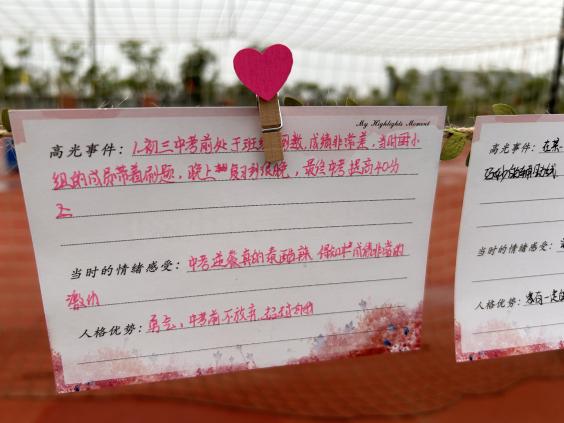 My Highlights Moment
高光事件：1.初三中考前处于班级倒数，成绩非常差，当时由小
组的成员带着刷题，晚上复习到很晚，最终中考提高40分
2.
当时的情绪感受：中考逆袭真的最酷辣，得知中成绩非常的
激动
人格优势：勇气，中考前不放弃
高光事件：在某
当时的情绪感受：
人格优势：